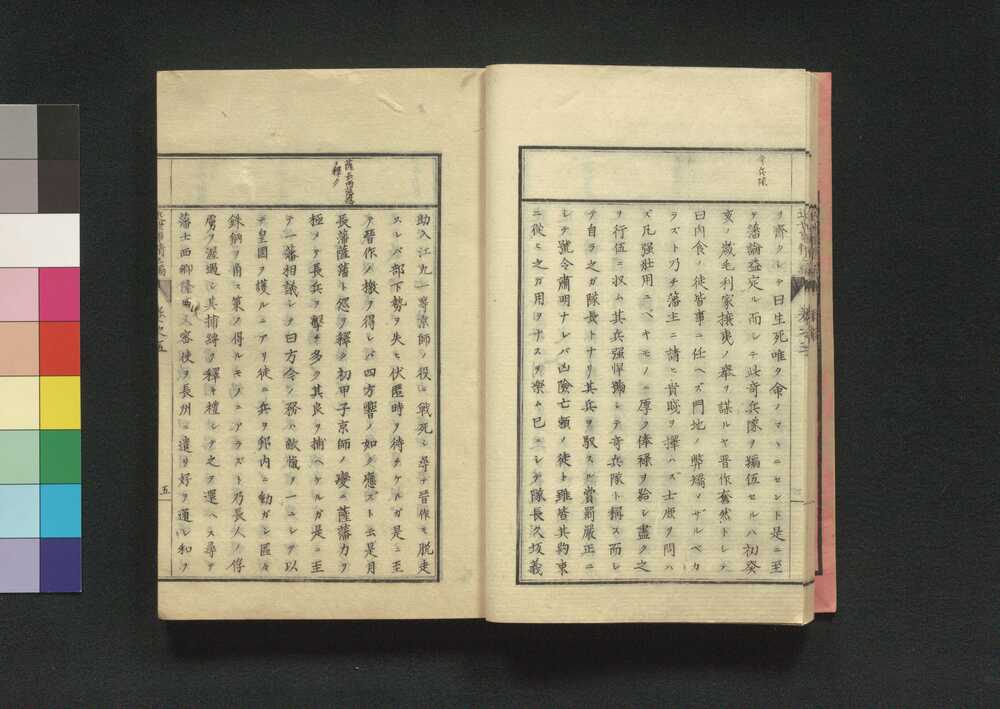 奇兵隊
リ齊クレヤ曰生死唯タ命ノマヽニセント是ニ至
テ藩論益定ル而シテ此奇兵隊ヲ編伍セルハ初癸
亥ノ歳毛利家攘夷ノ擧ヲ謀ルヤ晋作奮然トシテ
曰肉食ノ徒皆事ニ任ヘズ門地ノ弊矯メザルベカ
ラズト乃チ藩主ニ請ヒ貴賤ヲ擇ハズ士庶ヲ問ハ
ズ凡强壯用ユベキモノニ厚ク俸祿ヲ給シ盡ク之
ヲ行伍ニ収ム其兵强悍ニシテ奇兵隊ト稱ス而シ
テ自ラ之ガ隊長トナリ其兵ヲ馭スル賞罰嚴正ニ
シテ號令肅明ナレバ凶險亡頼ノ徒ト雖皆其約束
ニ從ヒ之ガ用ヲナスヲ樂ム已ニシテ隊長久坂義
薩長両藩怨ヲ釋ク
助入江九一等京師ノ役ニ戰死シ尋テ晋作モ脱走
スルバ部下勢ヲ失ヒ伏匿時ヲ待チケルガ是ニ至
テ晋作ノ檄ヲ得レバ四方響ノ如ク應ズト云是月
長藩薩藩ト怨ヲ釋ク初甲子京師ノ變ニ薩藩力ヲ
極メテ長兵ヲ擊チ多ク其良ヲ捕ヘケルガ是ニ至
テ一藩相議シテ曰方今ノ務ハ敵愾ヲ一ニシテ以
テ皇國ヲ護ルニアリ徒ニ兵ヲ邦内ニ動カシ區々
銖錙ヲ甭ス策ノ得ルモノニアラズト乃長人ノ俘
虜ヲ渥遇シ其捕縛ヲ釋キ禮シテ之ヲ還ヘス尋テ
藩士西郷隆盛ヲ密使ヲ長州ニ遣リ好ヲ通シ和ヲ
五